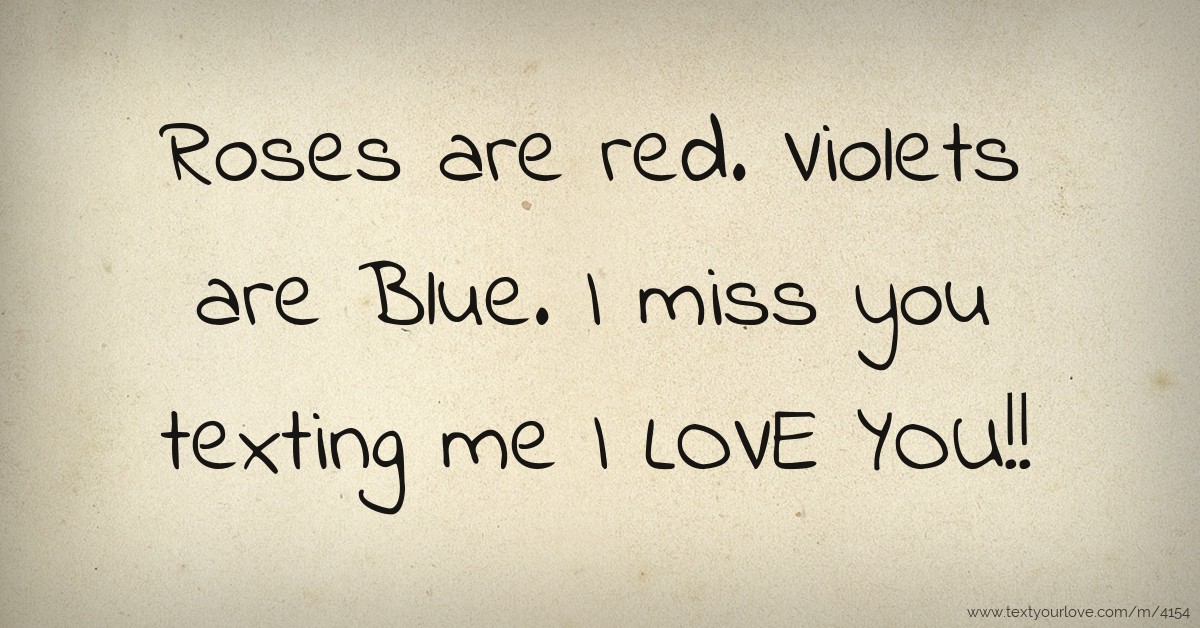 Roses are red. Violets
are Blue. I miss you
texting me I LOVE YOU!!
www.textyourlove.com/m/4154